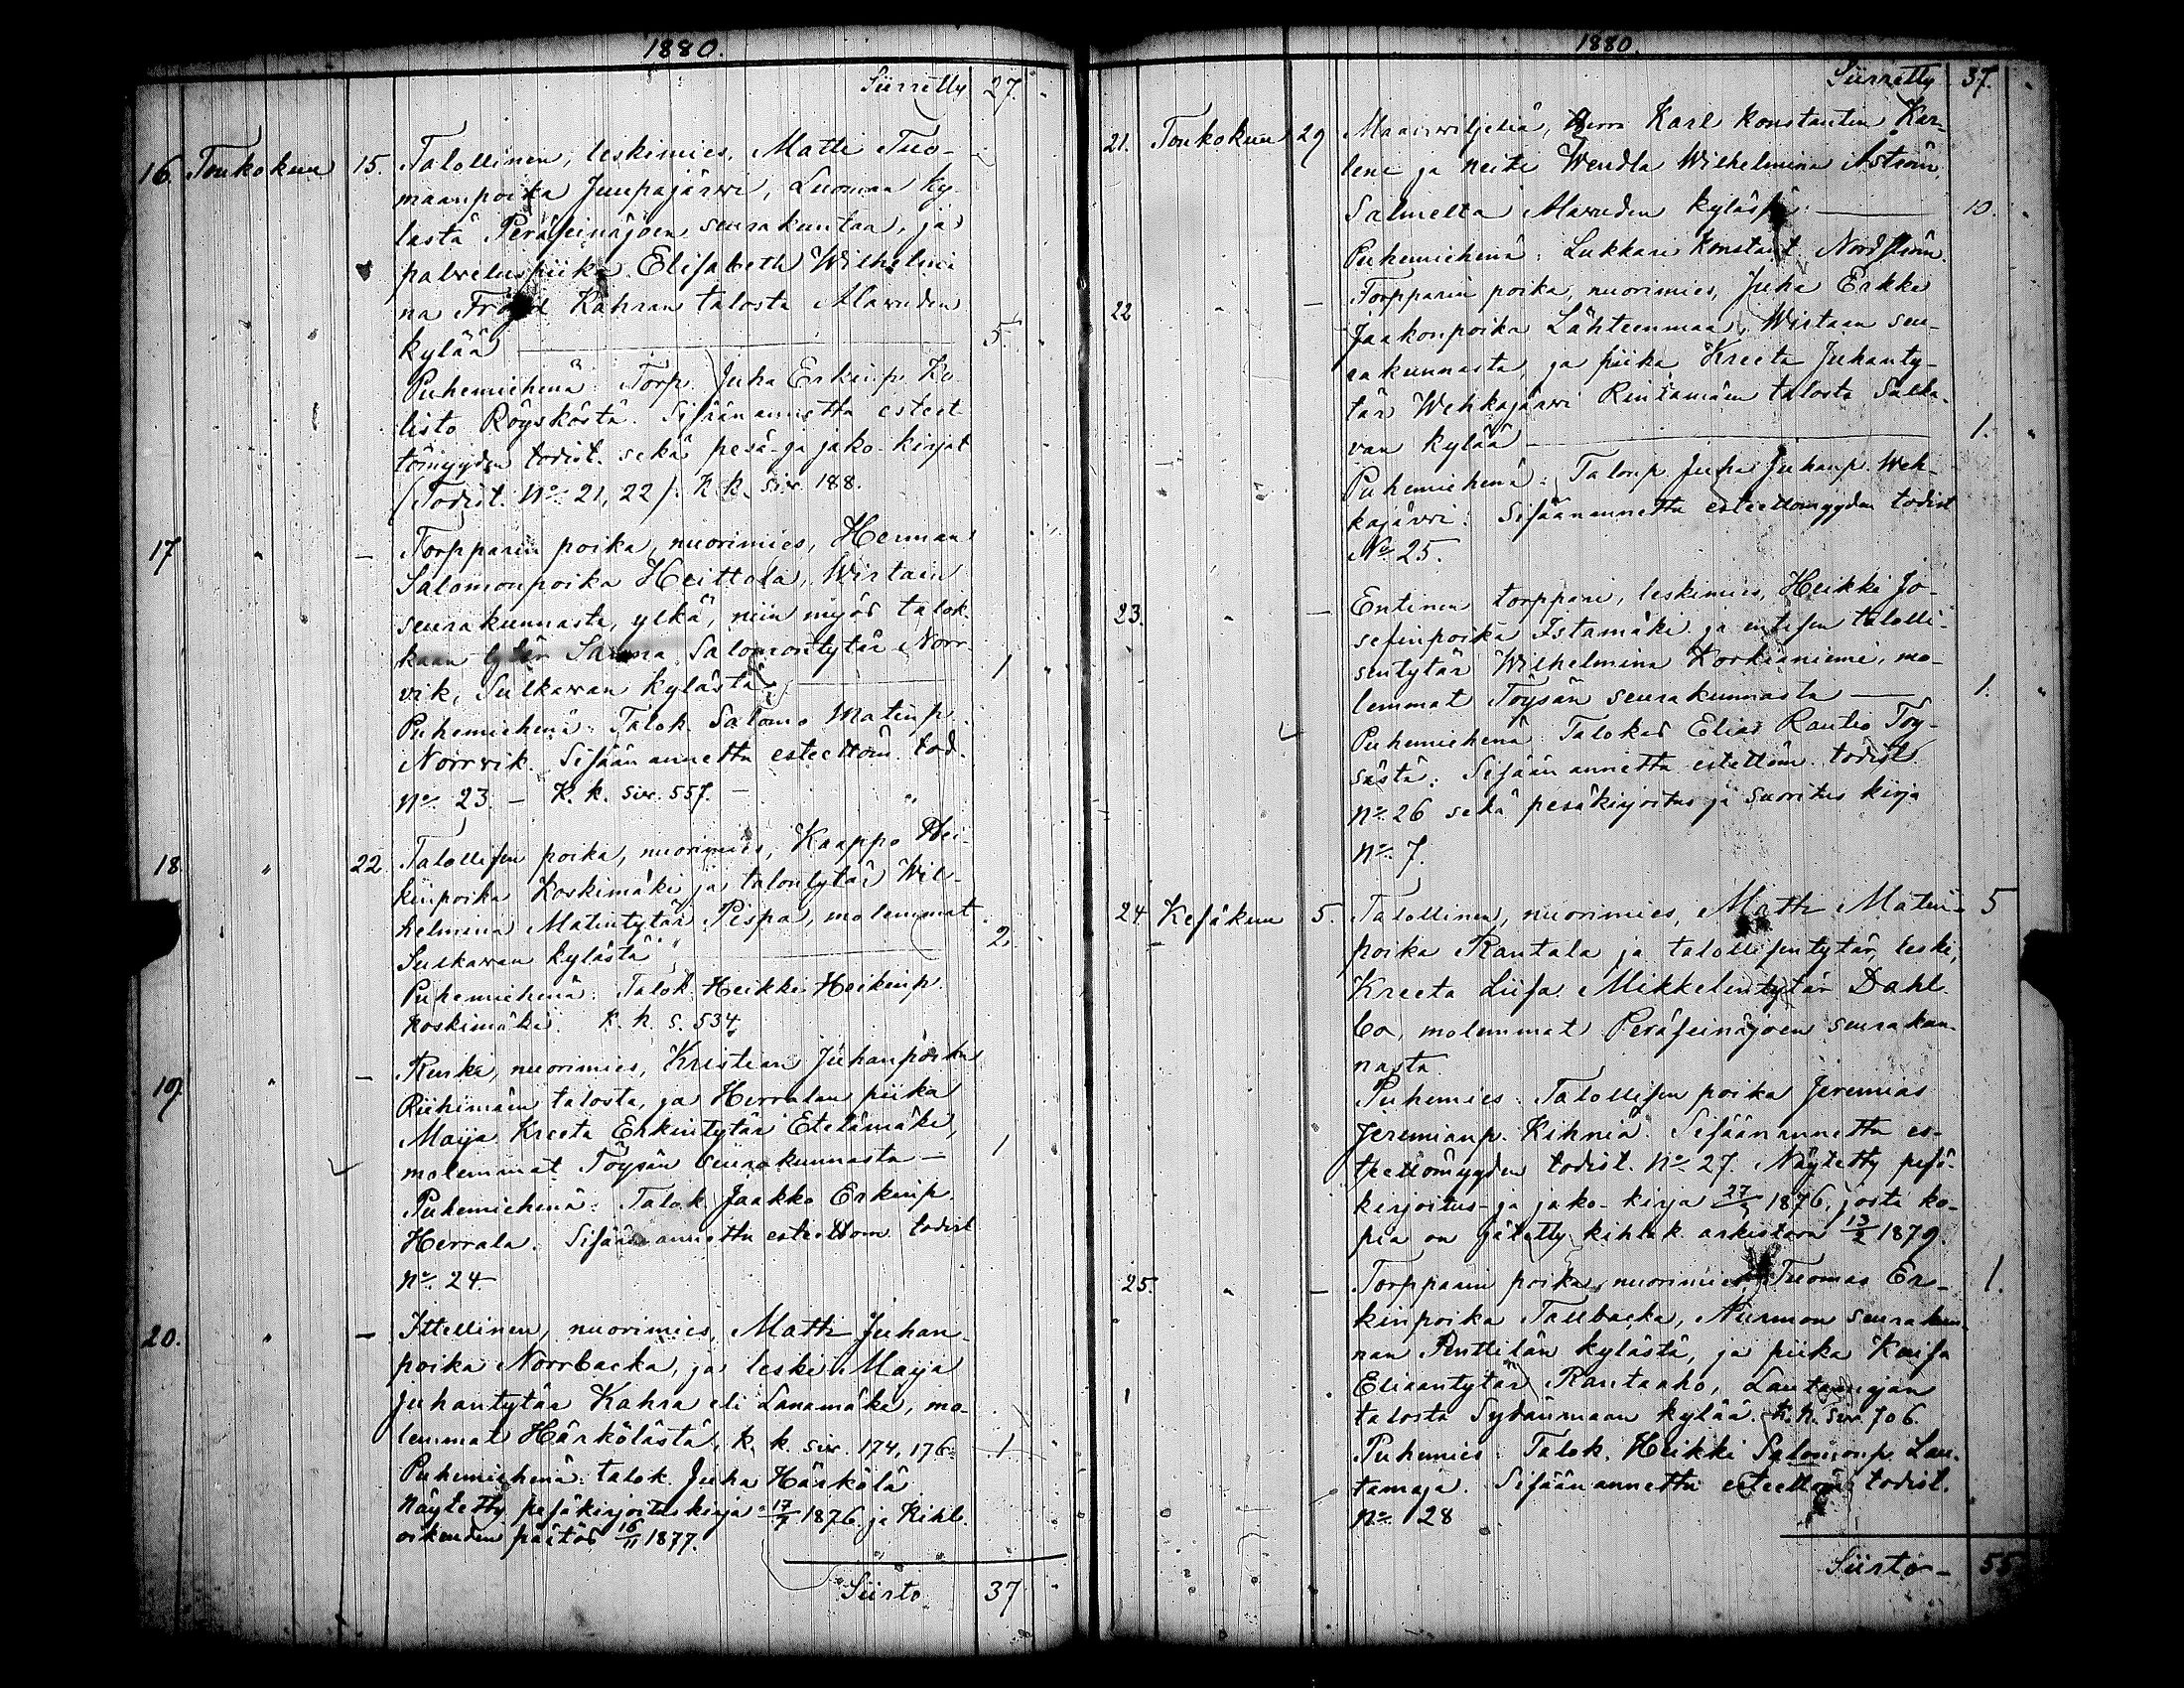 1880.
Siirretty 27.
16. Toukokuu 15. Talollinen, leskimies, Matti Tuo-
maanpoika Juupajärwi, Luoman ky-
lästä Peräseinäjoen seurakuntaa, ja
palveluspiika Elisabeth Wilhelmi
na Kahran talosta Alawuden
kylää 5
Puhemiehenä: Torp. Juha Erkinp. Ko
listo Röysköstä. Sisään annettu esteet
tömyyden todist. sekä pesä- ja jako-kirjat
(Todist. No. 21, 22). K. k. siv. 188.
17 " — Torpparin poika, nuorimies, Herman
Salomonpoika Heittola, Wirtain
seurakunnasta, ylkä, niin myös talok.
kaan tytär Sanna Salomontytär Norr-
vik, Sulkawan kylästä 1
Puhemiehenä: Talok. Salomo Matinp.
Norrvik. Sisään annettu esteettöm. tod.
No. 23. — K. k. siv. 557. —
18. " 22. Talollisen poika, nuorimies, Kaappo Hei-
kinpoika Koskimäki ja talontytär Wil-
helmina Matintytär Pispa, molemmat
Sulkawan kylästä 2.
Puhemiehenä: Talok. Heikki Heikinp.
Koskimäki. K. k. s. 534
19. " — Renki, nuorimies, Kristian Juhanpoika
Riihimäen talosta, ja Herralan piika
Maija Kreeta Erkintytär Etelämäki,
molemmat Töysän seurakunnasta — 1
Puhemiehenä: Talok. Jaakko Erkinp.
Herrala. Sisään annettu esteettöm todist
No. 24
20. " — Itsellinen, nuorimies, Matti Juhan-
poika Norrbacka, ja leski Maija
Juhantytär Kahra eli Lanamäki, mo-
lemmat Härkölästä, k. k. siv. 174, 176. 1
Puhemiehenä: talok. Juha Härkölä
Näytetty pesäkirjoituskirja 17/7 1876 ja Kihl.
oikeuden päätös 16/11 1877.
Siirto 37
1880.
Siirretty 37.
21. Toukokuu 29 Maanwiljeliä, Herra Karl Konstantin Kar-
lene ja neiti Wendla Wilhelmina Åström,
Salmelta Alawuden kylässä: — 10.
Puhemiehenä: Lukkari Konstant. Nordström.
22 " — Torpparin poika, nuorimies, Juha Erkki
Jaakonpoika Lähteenmaa, Wirtain seu-
rakunnasta, ja piika Kreeta Juhanty-
tär Wehkajärwi Rintamäen talosta Sulka-
van kylää 1.
Puhemiehenä: Talonp. Juha Juhanp. Weh-
kajärvi. Sisään annettu esteettömyyden todist
No. 25.
23. " — Entinen torppari, leskimies, Heikki Jo-
sefinpoika Istamäki ja entisen talolli-
sentytär Wilhelmina Korkianiemi, mo-
lemmat Töysän seurakunnasta — 1.
Puhemiehenä: Talokas Elias Rautio Töy-
sästä: Sisään annettu estettöm. todist.
No. 26 sekä pesäkirjoitus ja suoritus kirja
No. 7.
24. Kesäkuu 5. Talollinen, nuorimies, Matti Matin- 5
poika Rantala ja talollisentytär, leski,
Kreeta Liisa Mikkelintytär Dahl-
bo, molemmat Peräseinäjoen seurakun-
nasta.
Puhemies: Talollisen poika Jeremias
Jeremianp. Kihniä. Sisään annettu es-
teettömyyden todist. No. 27. Näytetty pesä-
kirjoitus- ja jako-kirja 1876, josta ko-
pia on jätetty kihlak. arkistoon 13/2 1879.
25. " — Torpparin poika, nuorimies, Tuomas Er- 1.
kinpoika Tallbacka, Nurmon seurakun-
nan Penttilän kylästä, ja piika Kaisa
Eliaantytär Rantaaho, Lautamajan
talosta Sydänmaan kylää. K. k. siv. 706
Puhemies: Talok. Heikki Salomonp. Lau-
tamaja. Sisään annettu esteettöm todist.
No. 28
Siirto — 55